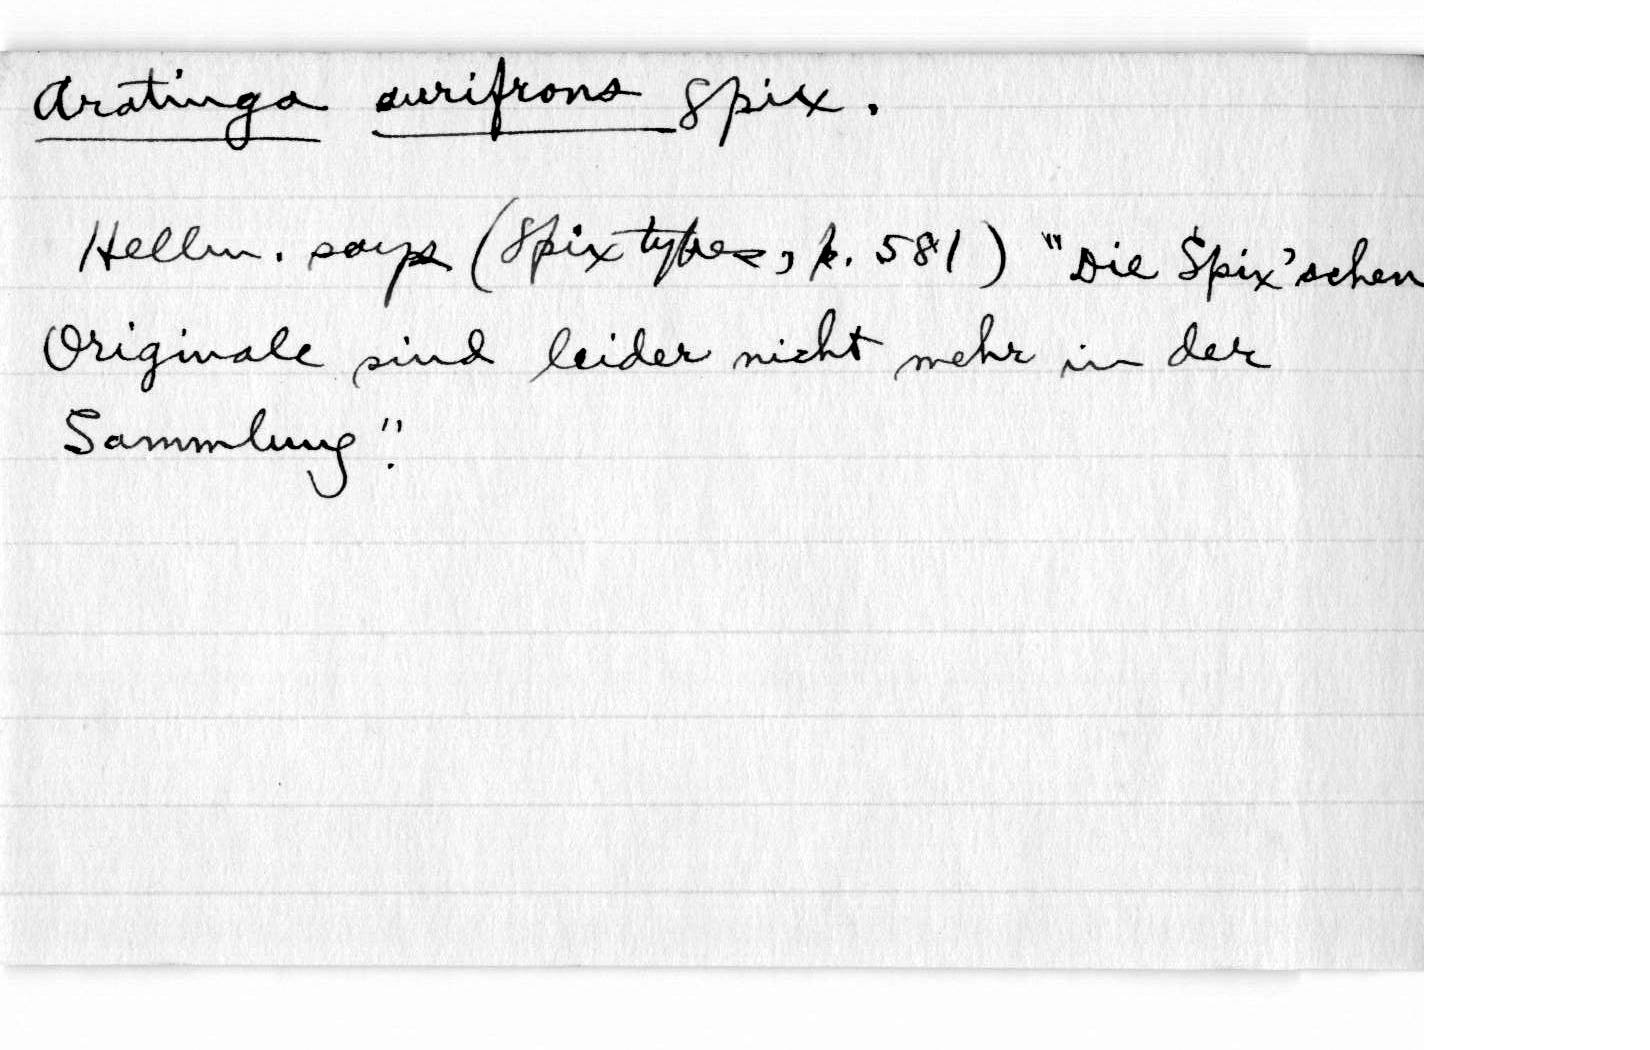 Aratinga aurifrons Spix.
Hellm. says (Spix types, p. 581) "Die Spix'schen
Originale sind leider nicht mehr in der
Sammlung".